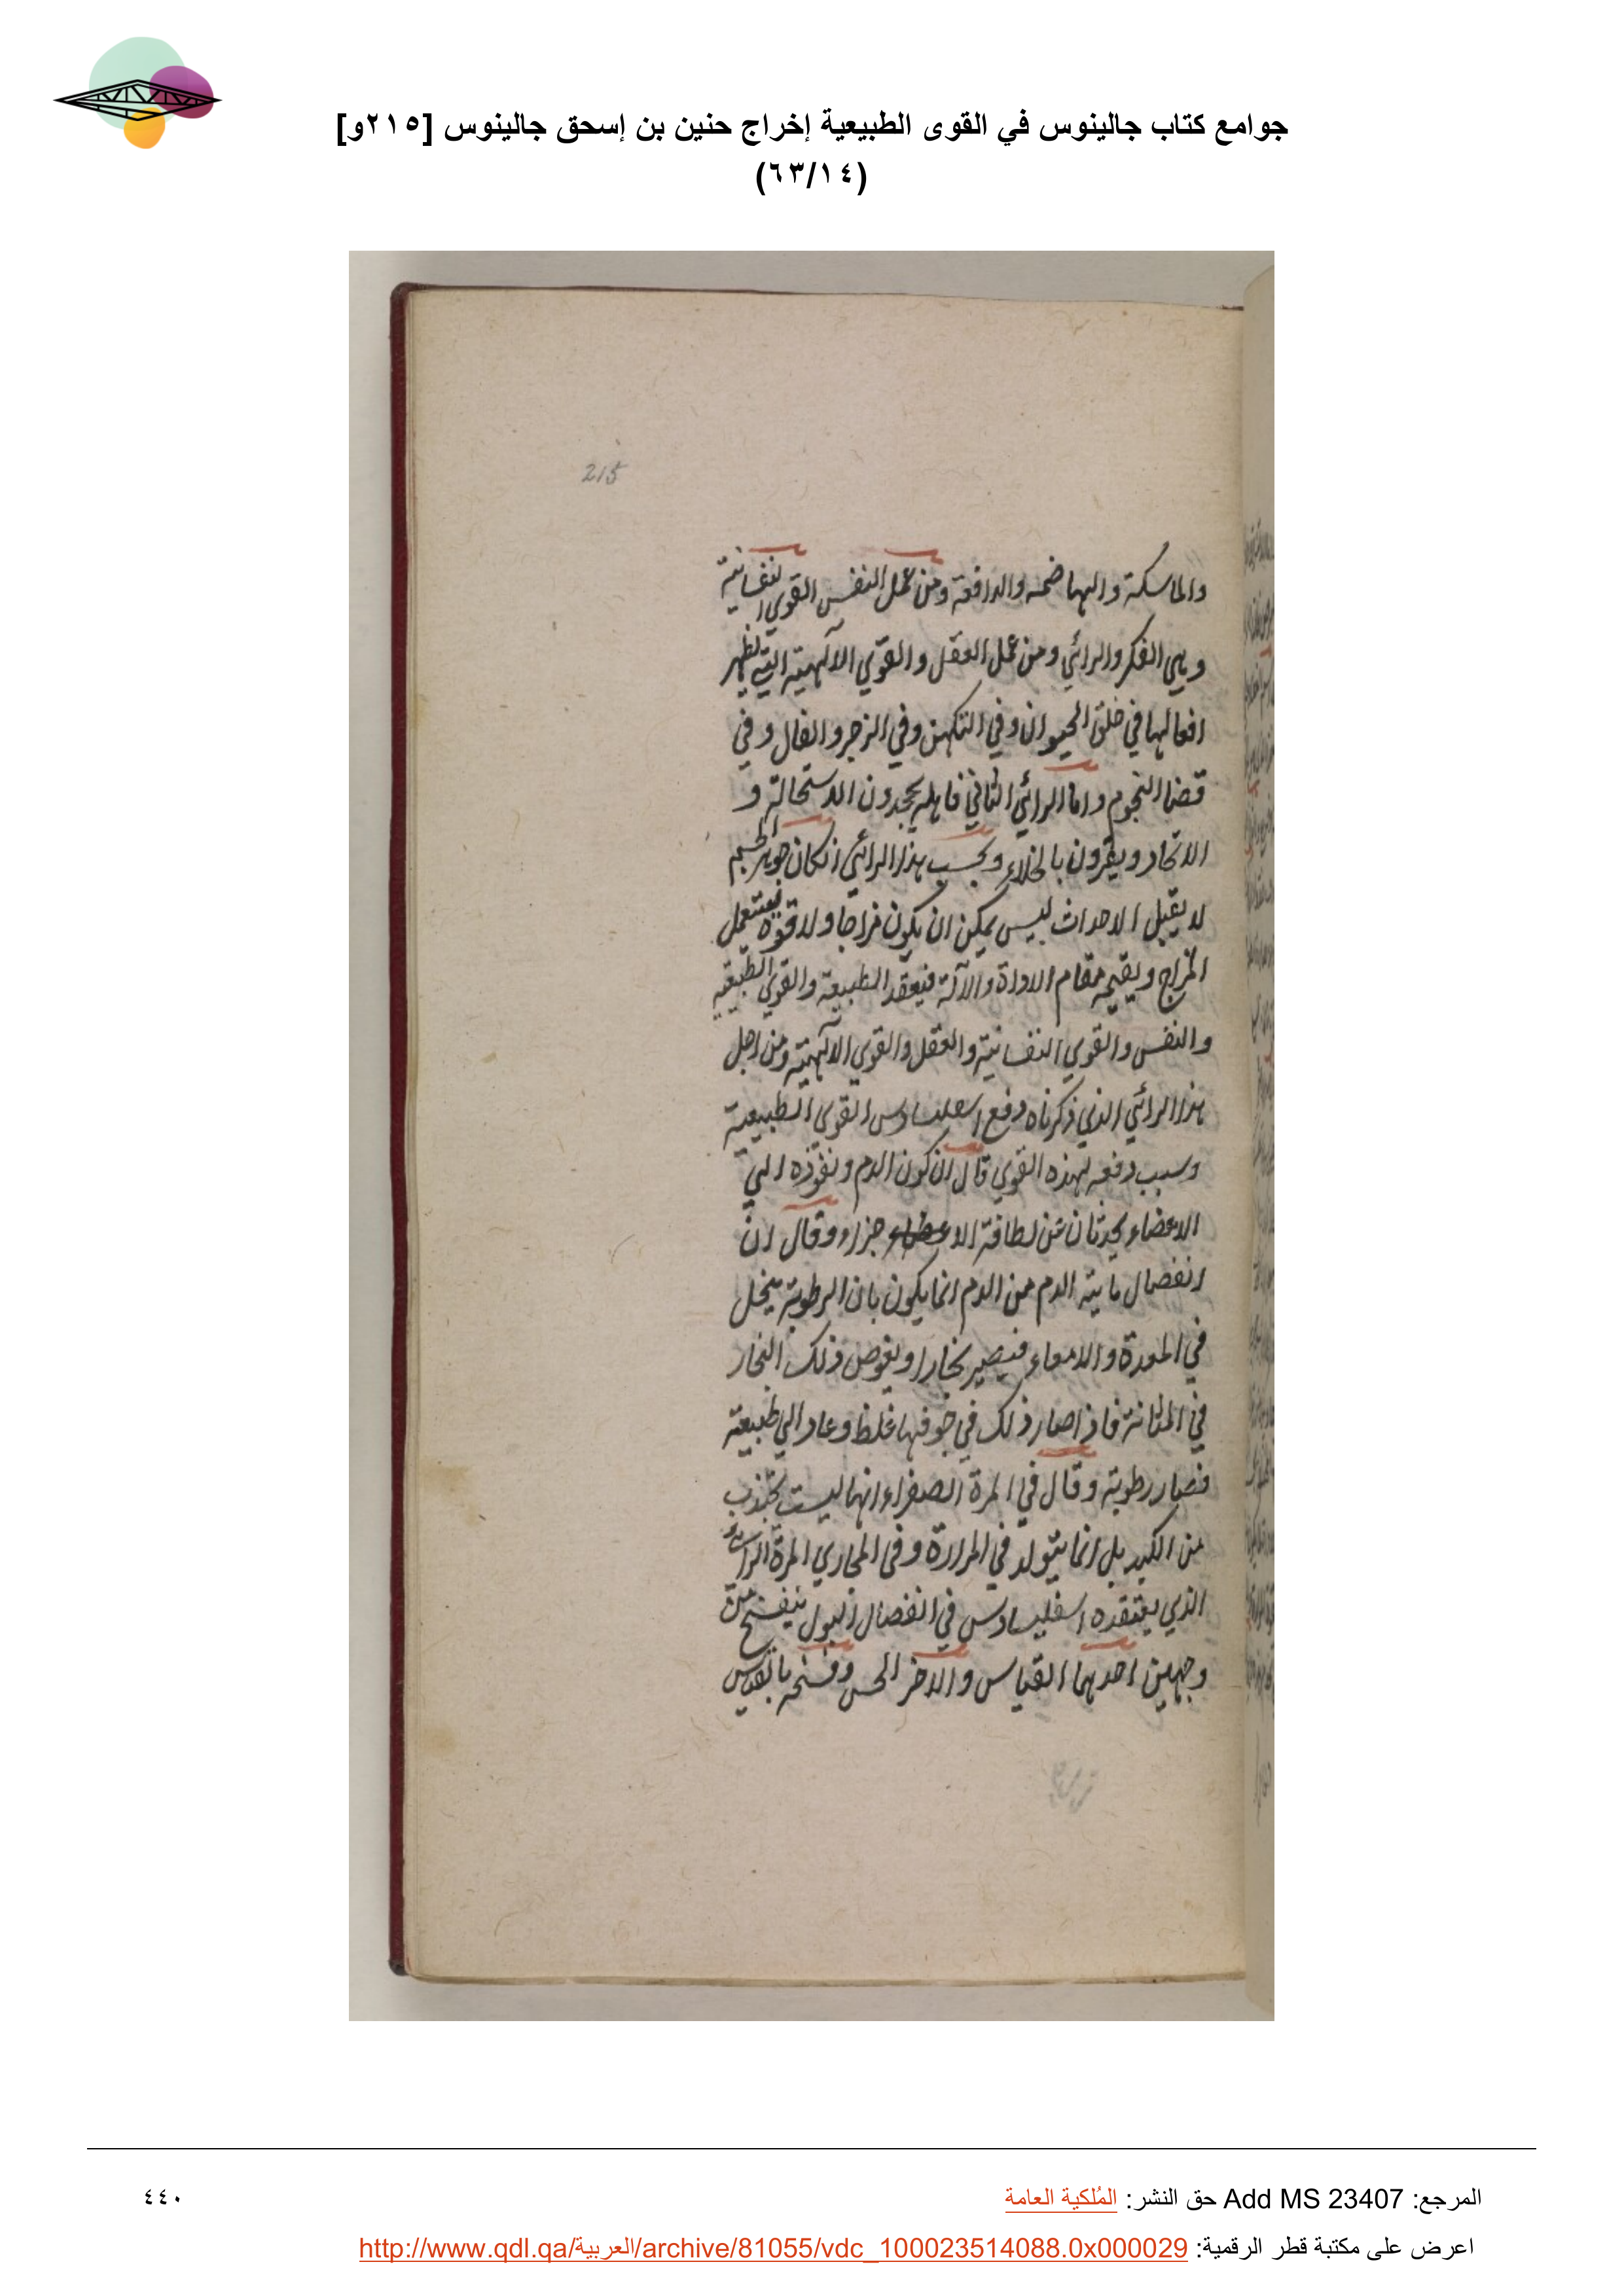 جوامع كتاب جالينوس في القوى الطبيعية إخراج حنين بن إسحق جالينوس [٢١٥و]
(٦٣/١٤)
215
والماسكة والهاضمه والدافعة ومن عمل النفس القوي النفسانية
وهي الفكر والرائي ومن عمل العقل والقوي الالهية التي تظهر
افعالها في خلق الحيوان وفي التكهن وفي الزجر والفال وفي
قضا النجوم واما الرائي الثاني فاهله يجحدون الاستحالة و
الاتحاد ويقرون بالخلاء وبحسب هذا الرائي ان كان جوهر الجسم
لا يقبل الاحداث ليس يمكن ان يكون مزاجا ولا قوة تستعمل
المزاج ويقيمه مقام الاداة والآلة فيفقد الطبيعة والقوي الطبيعية
والنفس والقوي النفسانية والعقل والقوي الالهية ومن اجل
هذا الرائي الذي ذكرناه دفع اسقليبادس القوي الطبيعية
وسبب دفعه لهذه القوي قال ان كون الدم ونفوذه الي
الاعضاء يحدثان من لطافة الا جزاء وقال ان
انفصال مايية الدم من الدم انما يكون بان الرطوبة تتحلل
في المعدة والامعاء فيصير بخارا ويغوص ذلك البخار
في المثانة فاذا صار ذلك في جوفها غلظ وعاد الي طبيعته
فصار رطوبة وقال في المرة الصفراء انها ليست تجتذب
من الكبد بل انما يتولد في المرارة وفي المجاري المرة الرائ
الذي يعتقده اسقليبادس في انفصال البول ينفسخ من
وجهين احدهما القياس والاخر الحس وفسخه بالقياس
المرجع: Add MS 23407 حق النشر: المُلكية العامة
٤٤٠
اعرض على مكتبة قطر الرقمية: http://www.qdl.qa/العربية/archive/81055/vdc_100023514088.0x000029